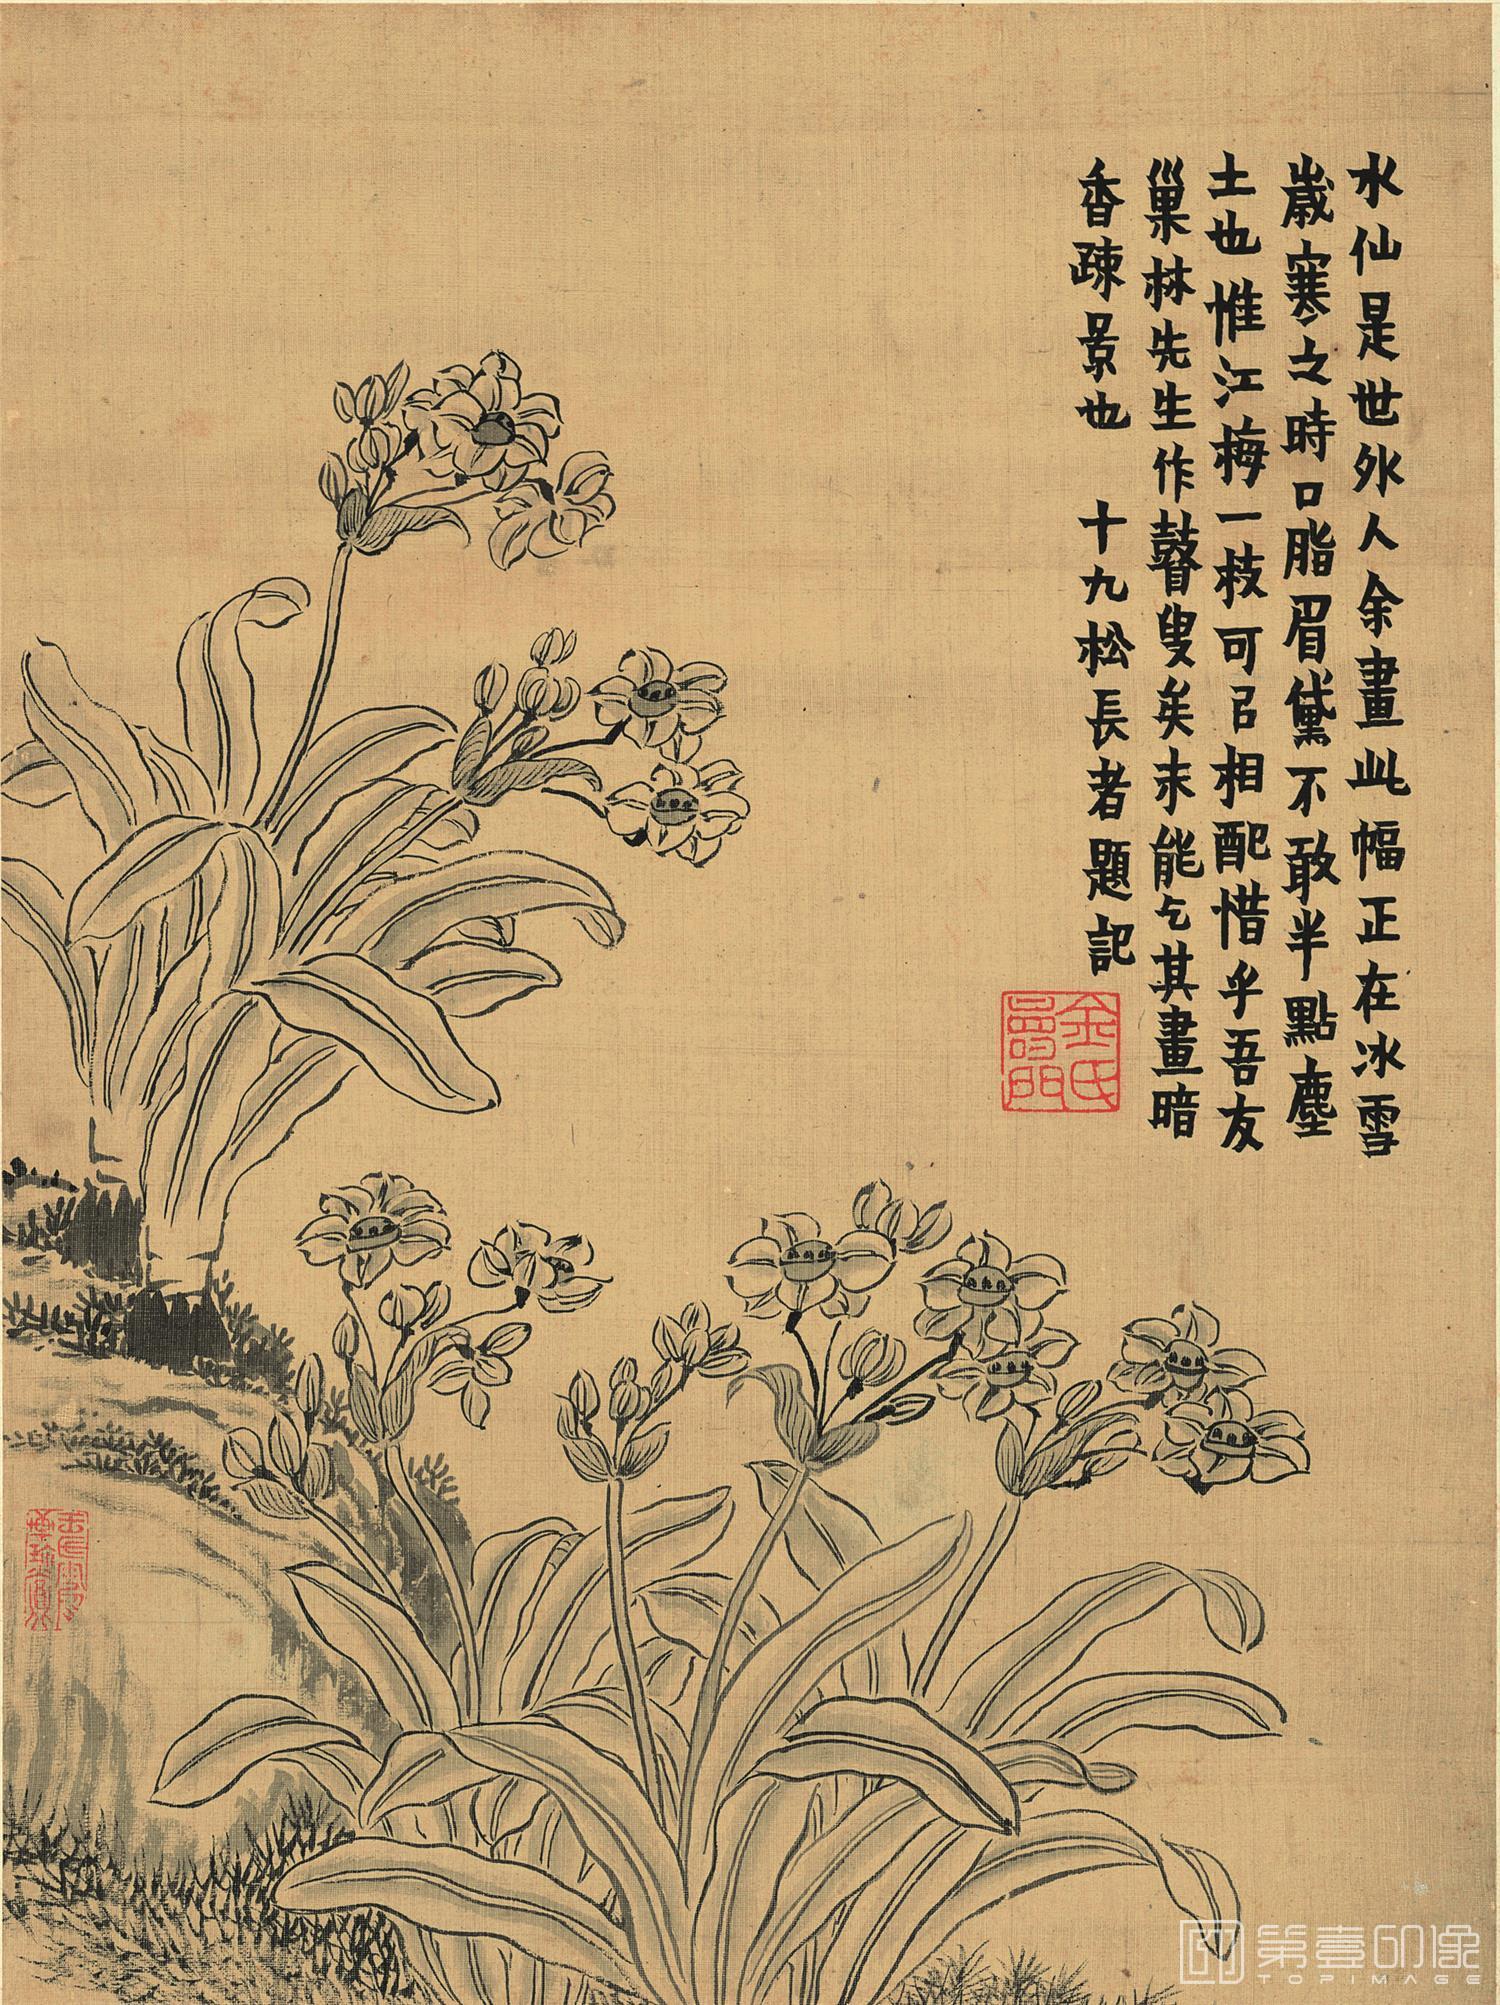 水仙是世外人余畫此幅正在冰雪
歲寒之時口脂眉黛不敢半點塵
土也惟江梅一枝可㠯相配惜乎吾友
巢林先生作瞽叟矣未能乞其畫暗
香疎景也 十九松長者題記
金氏壽門
第壹印像
TOPIMAGE